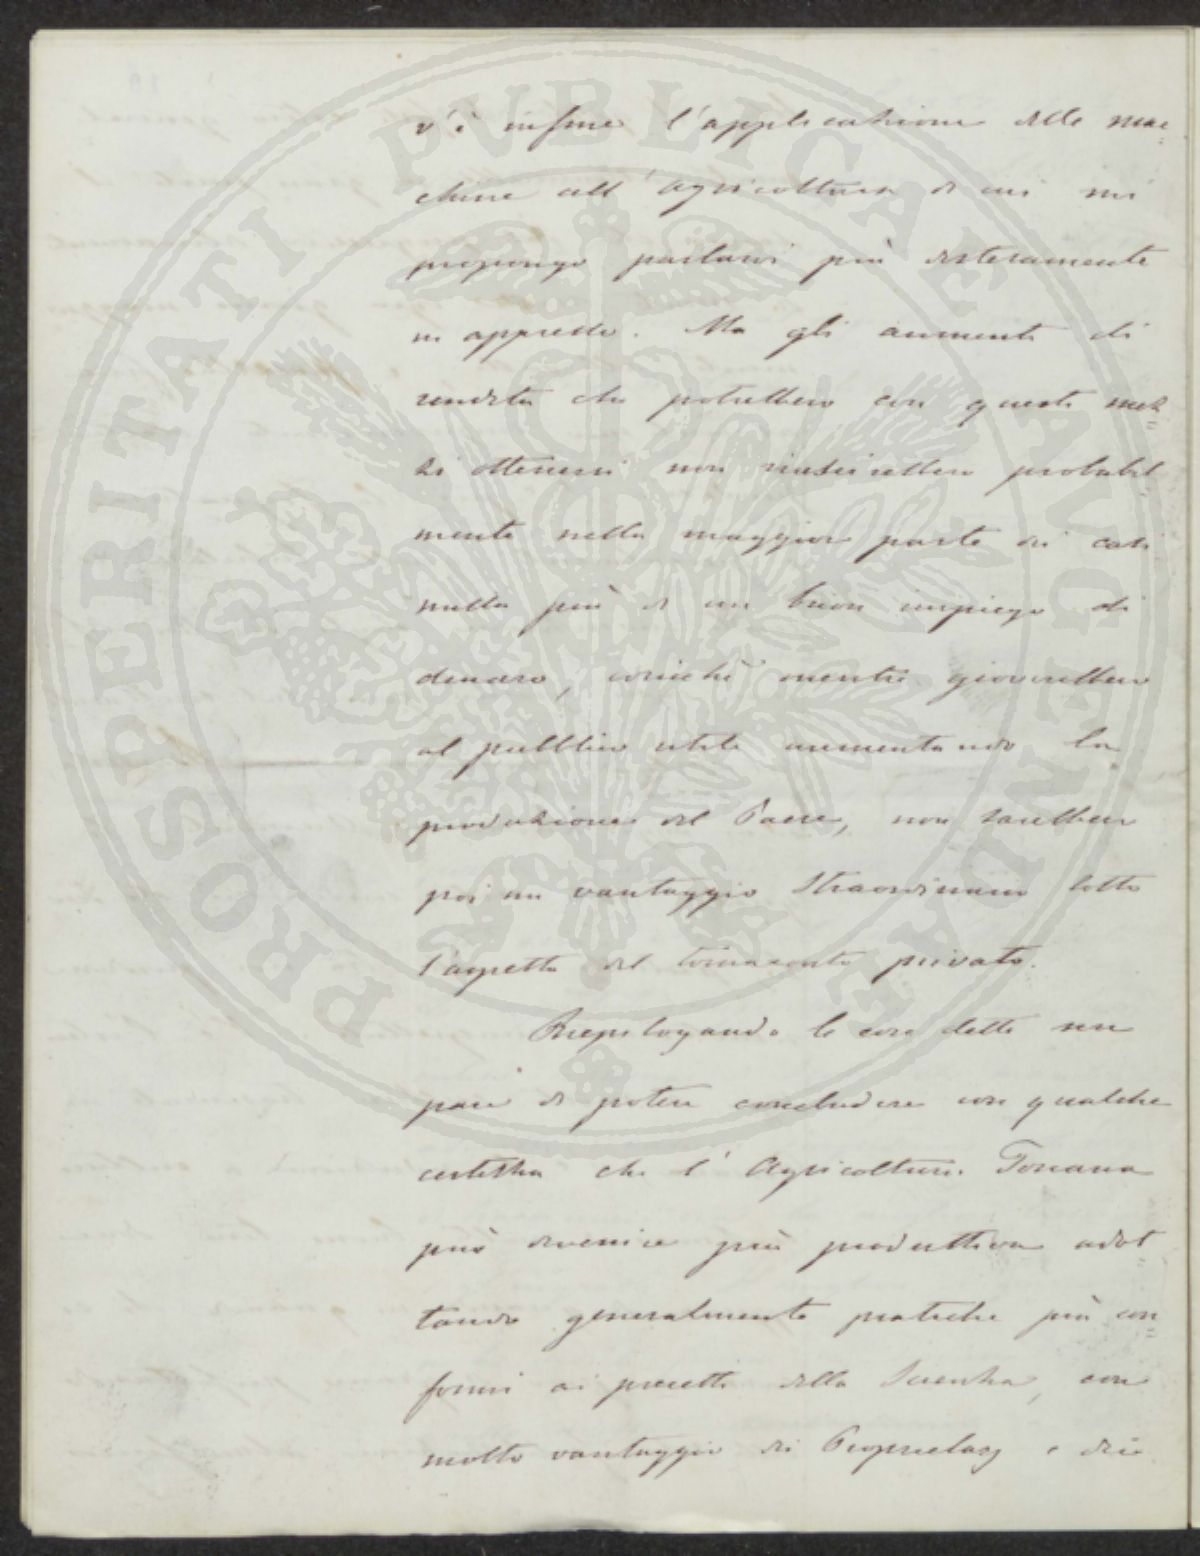 v'è infine l'applicazione delle mac=
chine all'agricoltura di cui mi
propongo parlarvi più estesamente
in appresso. Ma gli aumenti di
rendita che potrebbero con questi mez=
zi ottenersi non riuscirebbero probabil=
mente nella maggior parte dei casi
nulla più di un buon impiego di
denaro, cosicchè mentre gioverebbero
al pubblico utile aumentando la
produzione del Paese, non sarebbero
poi un vantaggio straordinario sotto
l'aspetto del tornaconto privato.
Riepilogando le cose dette mi
pare di potere concludere con qualche
certezza che l'Agricoltura Toscana
può divenire più produttiva adot
tando generalmente pratiche più con=
formi ai precetti della Scienza, con
molto vantaggio dei Proprietarj e dei
PROSPERITATI PUBLICAE AUGENDAE